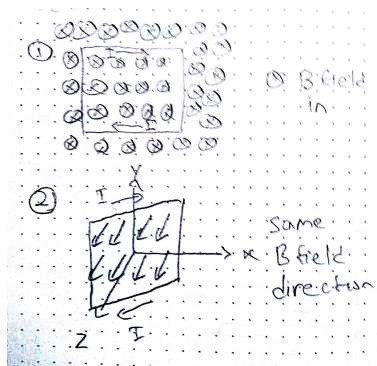 ①
I
I
⊗ B field
in
②
Y
I
Same
x B field
direction
I
Z